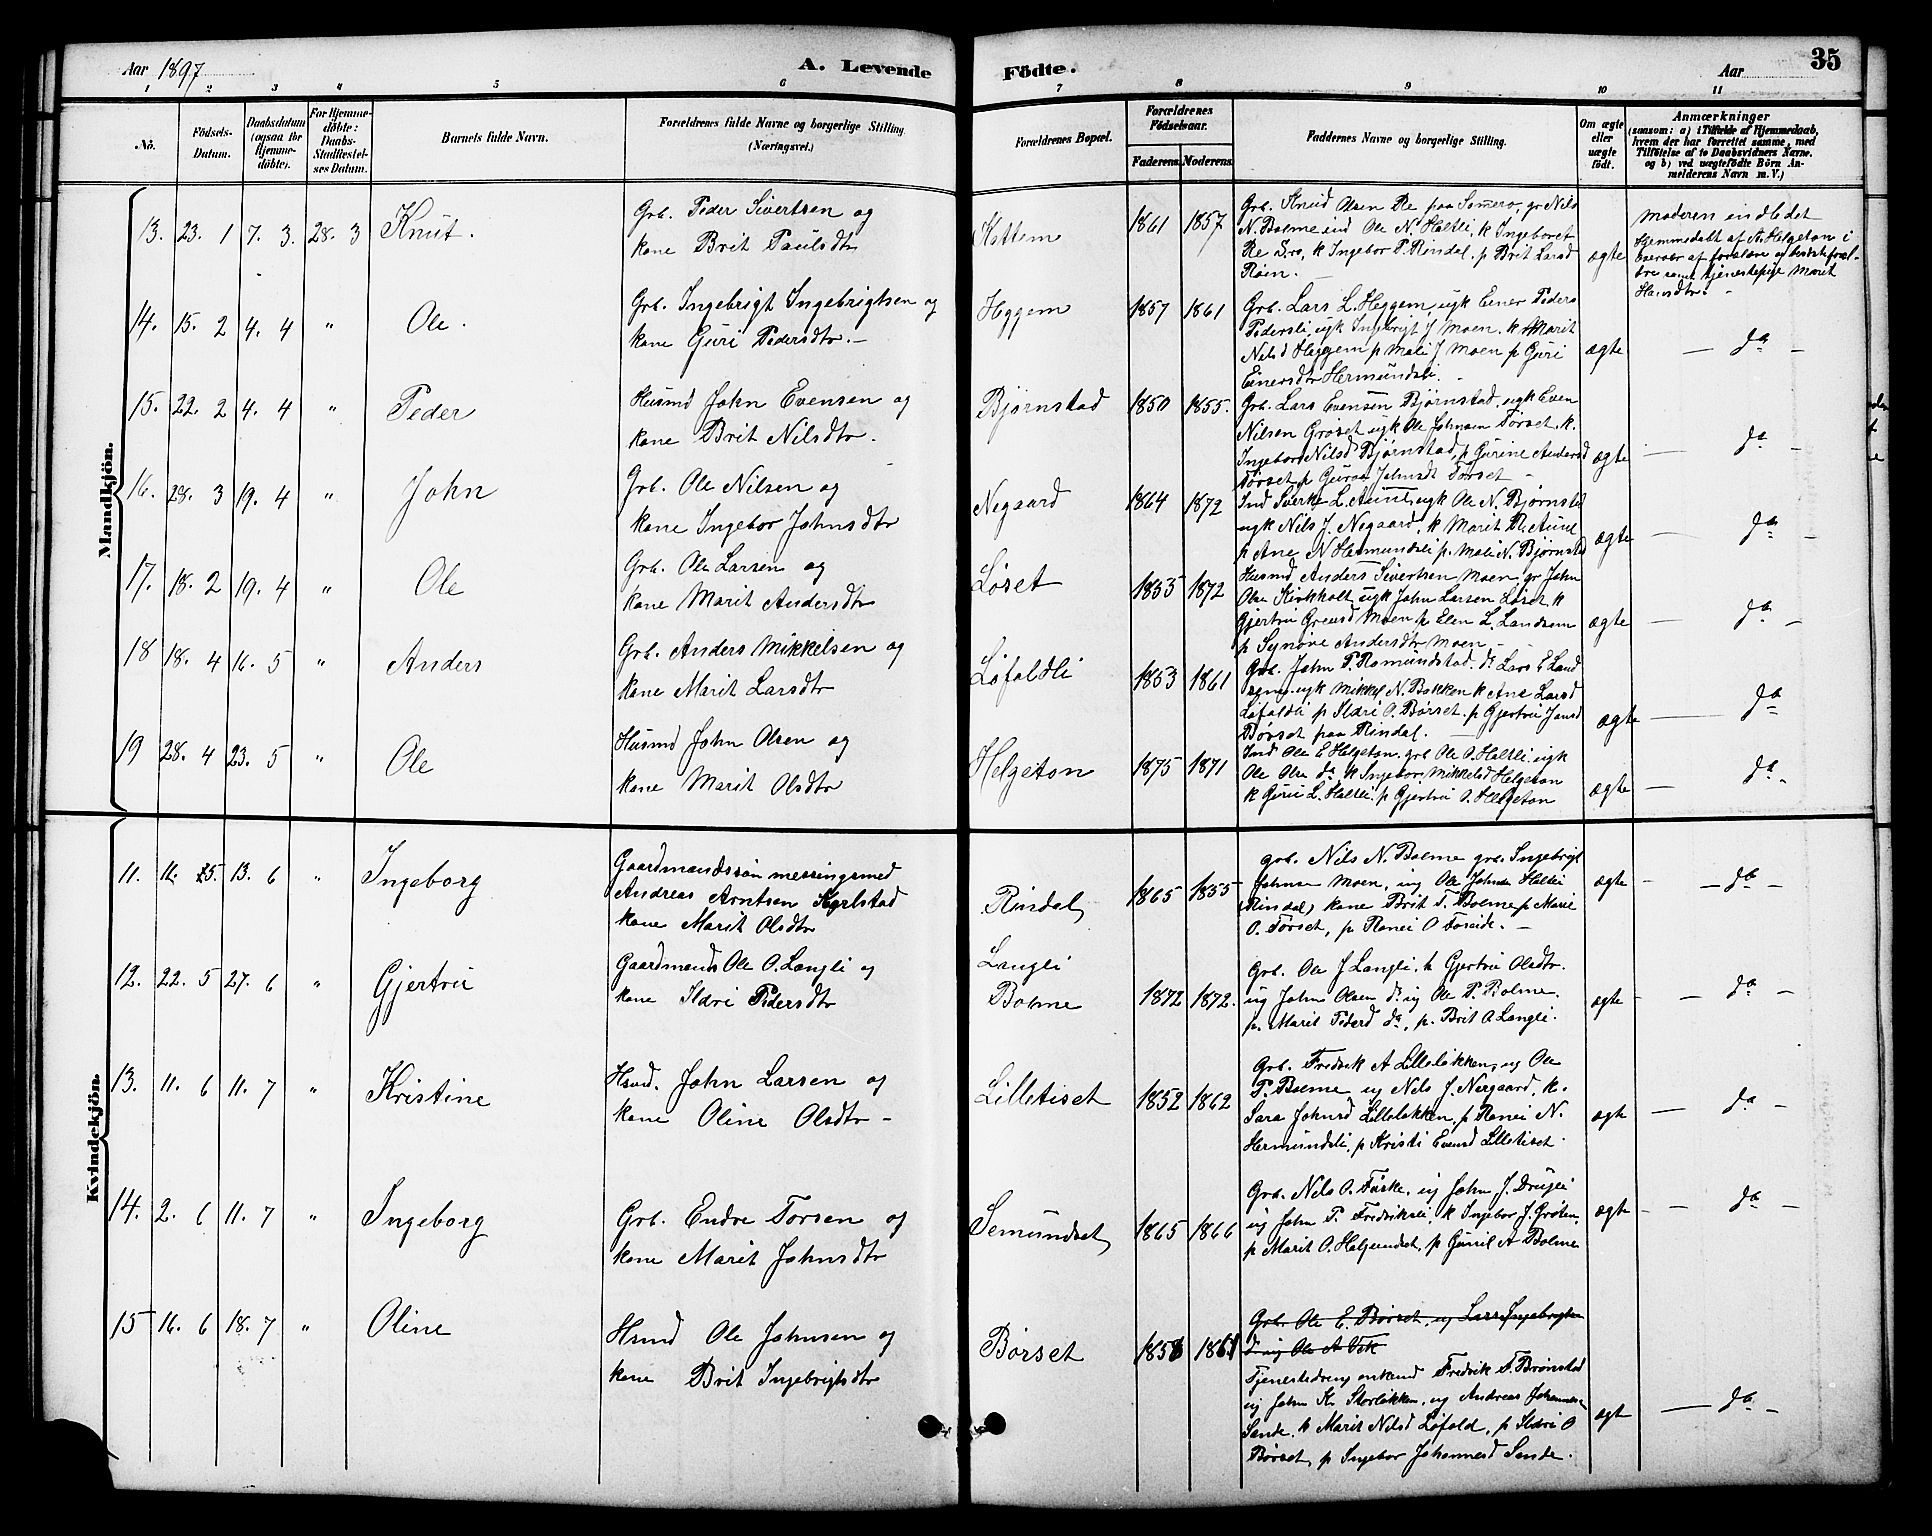 Aar 1897
A. Levende Födte.
Aar
35
1 2 3 4 5 6 7 8 9 10 11
No.
Födsels-
Datum.
Daabsdatum
(ogsaa for
Hjemme-
döbte).
For Hjemme-
döbte:
Daabs-
Stadfæstel-
ses Datum.
Barnets fulde Navn.
Forældrenes fulde Navne og borgerlige Stilling
(Næringsvei.)
Forældrenes Bopæl.
Forældrenes
Födselsaar.
Faderens. Moderens.
Faddernes Navne og borgerlige Stilling.
Om ægte
eller
uægte
födt.
Anmærkninger
(saasom: a) i Tilfælde af Hjemmedaab,
hvem der har forrettet samme, med
Tilföielse af to Daabsvidners Navne.
og b) ved uægtefödte Börn An-
melderens Navn m. V.)
Mandkjön.
13. 23. 1 7. 3. 28. 3 Knut.
Grb. Peder Sivertsen og
kone Brit Paulsdtr
Kattem 1861 1857
Grb. Knud Olsen Re paa Somero, gr Nils
N. Bolme ind Ole N. Haltli, k Ingeboret
Re S.ro, k Ingebor P. Rindal, p Brit Larsd
Røen.
ægte
Moderen indledet
Hjemmedøbt af A. Helgeton i
Overvær af forældre og bedsteforæl-
dre samt tjenestepige Marit
Hansdtr.
14. 15. 2 4. 4 " Ole.
Grb. Ingebrigt Ingebrigtsen og
kone Guri Pedersdtr.
Heggem 1857 1861
Grb. Lars L. Heggem, ugk Einer Peders
Pedersli ugk Ingebrigt J Moen, k Marit
Nilsd Heggem p Mali J Moen p Guri
Einersdtr Hermundsli.
ægte — da —
15. 22. 2 4. 4 " Peder
Husmd John Evensen og
kone Brit Nilsdtr.
Bjørnstad 1850 1855.
Grb. Lars Evensen Bjørnstad, ugk Even
Nilsen Grøset ugk Ole Johnsen Tørset, k.
Ingebor Nilsd Bjørnstad, p Gurine Andersd
Tørset, p Guroe Johnsdt Tørset
ægte — da —
16. 28. 3 19. 4 " John
Grb. Ole Nilsen og
kone Ingebor Johnsdtr
Negaard 1864 1872
Ind Sverke L. Aune, ugk Ole N. Bjørnstd
ugk Nils J. Negaard, k Marit P. Aune
p Ane N Hermundsli p. Mali N. Bjørnstad
ægte — da —
17. 18. 2 19. 4 " Ole
Grb. Ole Larsen og
kone Marit Andersdtr
Løset 1853 1872
Husmd Anders Sivertsen Moen, gr John
Olse Kirkholt ugk John Larsen Løset k
Gjertru Greusd Moen p Elen L. Landsem
p Synøve Andersdtr Moen
ægte — da —
18 18. 4 16. 5 " Anders
Grb. Anders Mikkelsen og
kone Marit Larsdtr
Løfaldli 1853 1861
Grb. John P. Romundstad. do Lars E Land
sem ugk Mikkel N. Bakken k Ane Larsd
Løfaldli p Ildri O. Børset. p Gjertru Jonsd
Børset paa Rindal.
ægte — da
19 28. 4 23. 5 " Ole
Husmd John Olsen og
kone Marit Olsdtr
Helgeton 1875 1871
Ind Ole E Helgeton, grb Ole O. Haltli, ugk
Ole Olse da k Ingebor Mikkelsd Helgeton
k Guri L. Haltli. p Gjertru O. Helgeton
ægte — da.
Kvindekjön.
11. 12. 5. 13. 6 " Ingeborg
Gaardmandssøn messingsmed
Andreas Arntsen Karlstad
kone Marit Olsdtr
Rindal 1865 1855
grb. Nils N. Bolme grb. Ingebrigt
Johnse Moen, ug Ole Johnse Haltli
(Rindal) kone Brit T. Bolme, p Marie
O. Tørset, p. Ranei O Foseide.
ægte — da —
12. 22. 5 27. 6 " Gjertru
Gaardmands Ole O. Langli og
kone Ildri Pedersdtr
Langli
Bolme 1872 1872.
Grb. Ole J Langli, k Gjertru Olsdtr.
ug John Olsen do ug Ole P. Bolme.
p. Marit Pedersd da, p. Brit O Langli.
ægte — da —
13. 11. 6 11. 7 " Kristine
Hsmd. John Larsen og
kone Oline Olsdtr
Lilletiset 1852 1862
Grb. Fredrik A Lilleløkken, ug Ole
P. Bolme ug Nils J. Nergaard, k.
Sara Johnsd Lilleløkken, p Ranei N.
Hermundsli, p Kristi Evensd Lilletiset.
ægte — da —
14. 2. 6 11. 7 " Ingeborg
Grb. Endre Torsen og
kone Marit Johnsdtr
Semundset 1865 1866
Grb. Nils O. Fiske, ug John J. Drugli
ug John P. Fredriksli, k Ingebor J. Grøten,
p Marit O. Haljemdset, p Guruil A Bolme
ægte — da —
15 16. 6 18. 7 " Oline
Hsmd Ole Johnsen og
kone Brit Ingebrigtsdtr
Børset 1856 1861
Grb. Ole E. Børset, ug Lars Ingebrigtsen
d ug Ole A Vek
Tjenestedreng enkemd Fredrik F. Brønstad
ug John Kr Storløkken, ug Andreas Johannesen
Sande. k Marit Nilsd Løfald, p Ildri O
Børset, p Ingebor Johannesd Sande.
ægt — da —